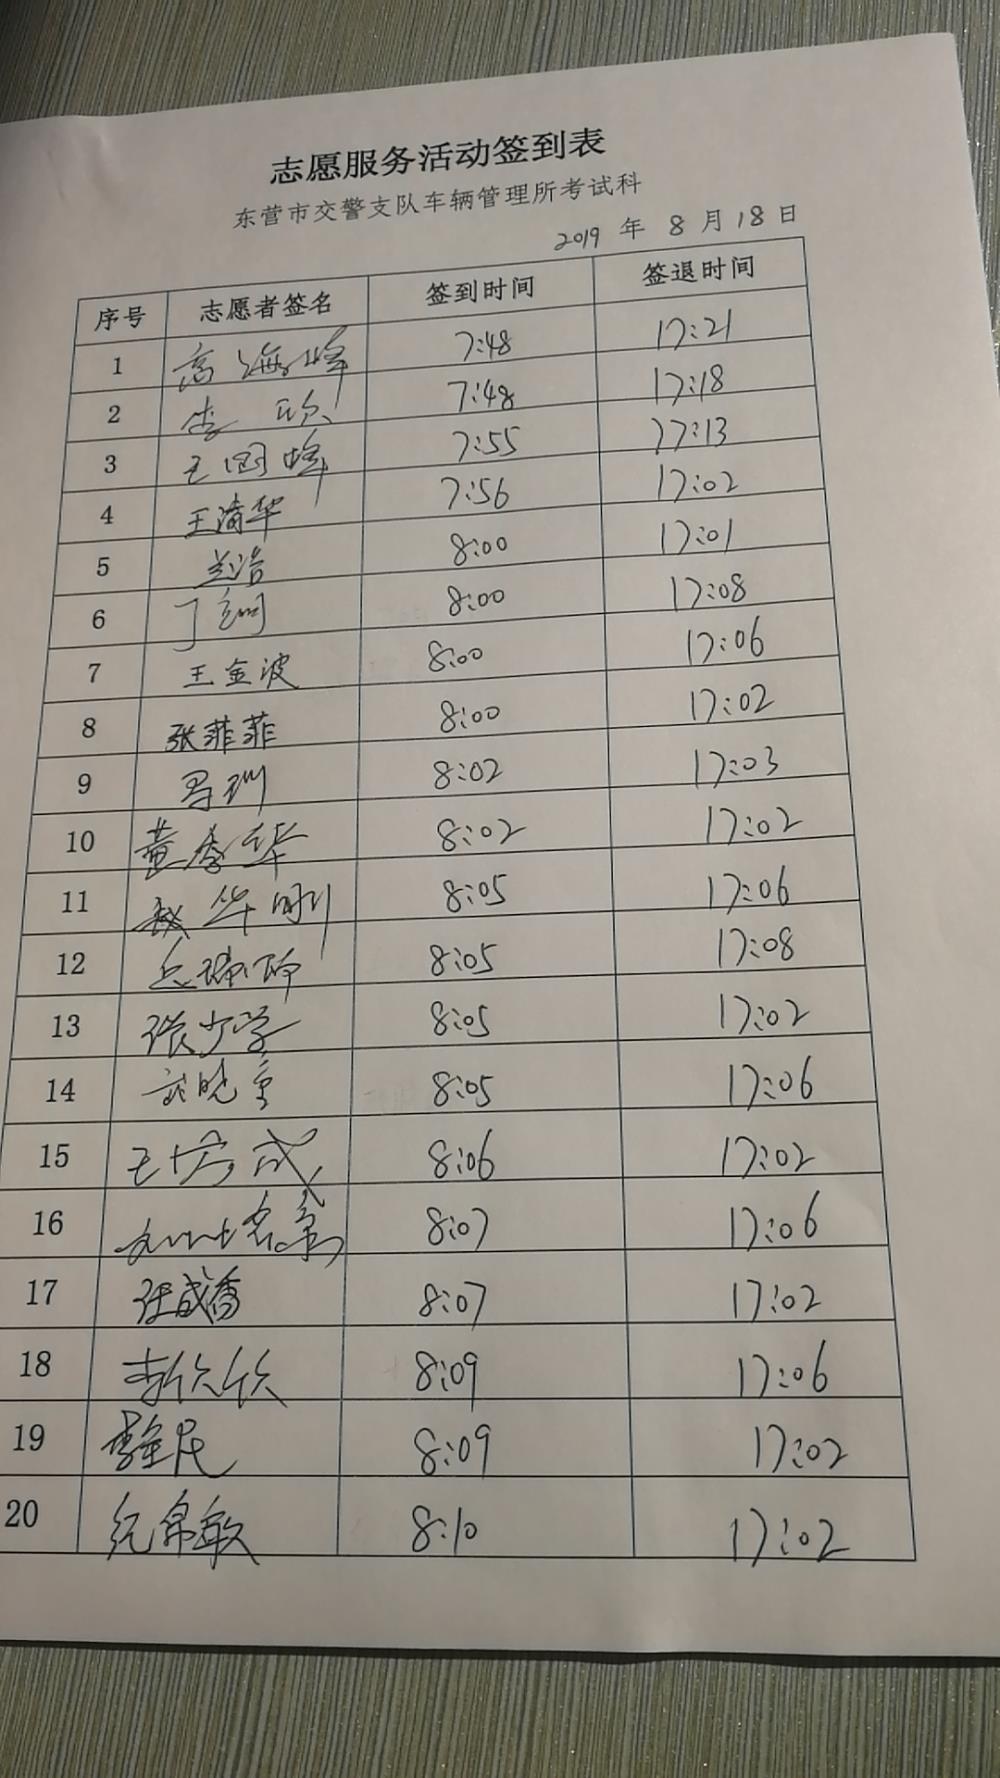 志愿服务活动签到表
东营市交警支队车辆管理所考试科
2019 年 8 月 18 日
序号 志愿者签名 签到时间 签退时间
1 高海峰 7:48 17:21
2 李欣 7:48 17:18
3 王国峰 7:55 17:13
4 王清华 7:56 17:02
5 兰浩 8:00 17:01
6 丁 8:00 17:08
7 王金波 8:00 17:06
8 张菲菲 8:00 17:02
9 8:02 17:03
10 董秀华 8:02 17:02
11 赵华刚 8:05 17:06
12 8:05 17:08
13 张少学 8:05 17:02
14 武晓 8:05 17:06
15 王 成 8:06 17:02
16 8:07 17:06
17 张成香 8:07 17:02
18 李欣欣 8:09 17:06
19 李 民 8:09 17:02
20 纪 敏 8:10 17:02